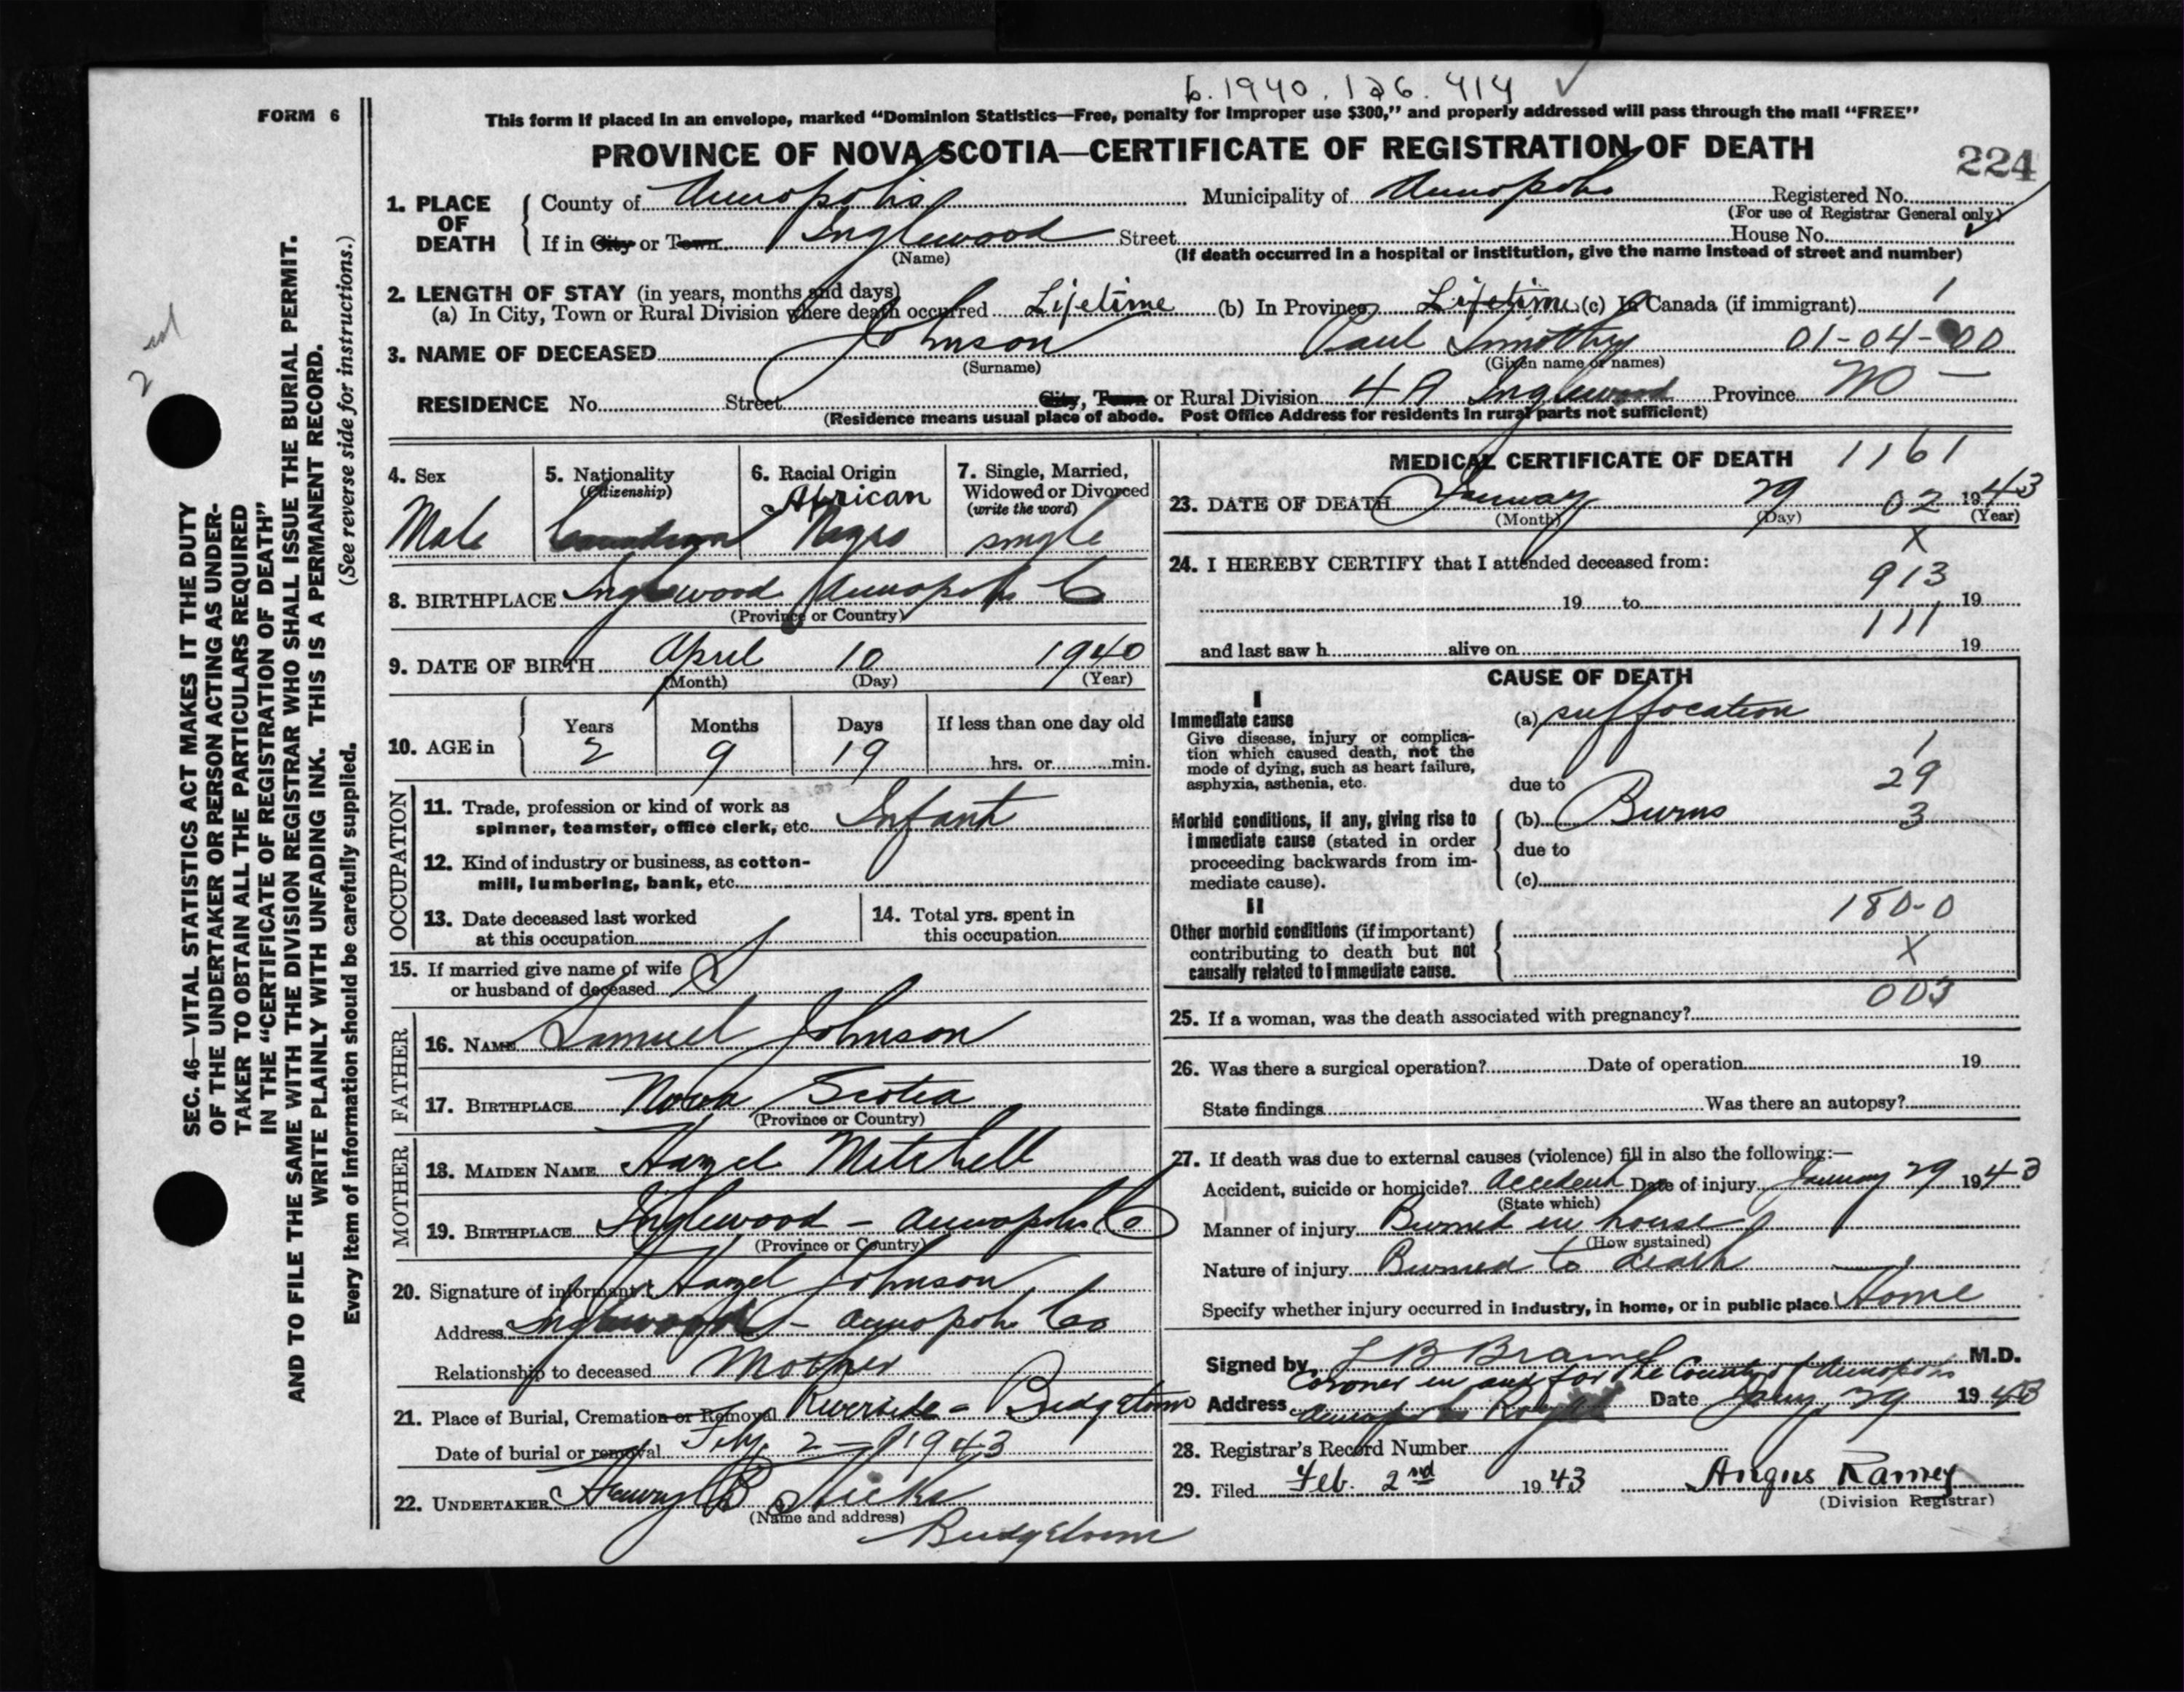 b. 1940. 126. 414 ✓
FORM 6
This form if placed in an envelope, marked “Dominion Statistics—Free, penalty for improper use $300,” and properly addressed will pass through the mail “FREE”
PROVINCE OF NOVA SCOTIA—CERTIFICATE OF REGISTRATION OF DEATH
224
1. PLACE OF DEATH
County of Annapolis Municipality of Annapolis Registered No.
(For use of Registrar General only)
If in City or Town Inglewood Street House No.
(Name)
(If death occurred in a hospital or institution, give the name instead of street and number)
2. LENGTH OF STAY (in years, months and days)
(a) In City, Town or Rural Division where death occurred Lifetime (b) In Province Lifetime (c) In Canada (if immigrant) 1
3. NAME OF DECEASED Johnson Paul Timothy 01-04-00
(Surname) (Given name or names)
RESIDENCE No. Street City, Town or Rural Division 4 A Inglewood Province
(Residence means usual place of abode. Post Office Address for residents in rural parts not sufficient)
4. Sex
Male
5. Nationality
(Citizenship)
Canadian
6. Racial Origin
African
Negro
7. Single, Married,
Widowed or Divorced
(write the word)
single
8. BIRTHPLACE Inglewood Annapolis Co
(Province or Country)
9. DATE OF BIRTH April 10 1940
(Month) (Day) (Year)
10. AGE in
Years Months Days If less than one day old
2 9 19 hrs. or min.
OCCUPATION
11. Trade, profession or kind of work as
spinner, teamster, office clerk, etc. Infant
12. Kind of industry or business, as cotton-
mill, lumbering, bank, etc.
13. Date deceased last worked
at this occupation
14. Total yrs. spent in
this occupation
15. If married give name of wife
or husband of deceased S
FATHER
16. NAME Samuel Johnson
17. BIRTHPLACE Nova Scotia
(Province or Country)
MOTHER
18. MAIDEN NAME Hazel Mitchell
19. BIRTHPLACE Inglewood - Annapolis Co
(Province or Country)
20. Signature of informant Hazel Johnson
Address Inglewood - Annapolis Co
Relationship to deceased Mother
21. Place of Burial, Cremation or Removal Riverside - Bridgetown
Date of burial or removal Feby. 2 - 1943
22. UNDERTAKER Henry B Hicks
(Name and address)
Bridgetown
MEDICAL CERTIFICATE OF DEATH 1161
23. DATE OF DEATH January 29 02 1943
(Month) (Day) (Year)
X
24. I HEREBY CERTIFY that I attended deceased from:
913
19 to 19
111
and last saw h alive on 19
CAUSE OF DEATH
I
Immediate cause
Give disease, injury or complica-
tion which caused death, not the
mode of dying, such as heart failure,
asphyxia, asthenia, etc.
(a) suffocation
1
due to 29
Morbid conditions, if any, giving rise to
immediate cause (stated in order
proceeding backwards from im-
mediate cause).
(b) Burns 3
due to
(c)
II
180-0
Other morbid conditions (if important)
contributing to death but not
causally related to immediate cause.
X
003
25. If a woman, was the death associated with pregnancy?
26. Was there a surgical operation? Date of operation 19
State findings Was there an autopsy?
27. If death was due to external causes (violence) fill in also the following:—
Accident, suicide or homicide? Accident Date of injury January 29 1943
(State which)
Manner of injury Burned in house
(How sustained)
Nature of injury Burned to death
Specify whether injury occurred in industry, in home, or in public place Home
Signed by L B Bramel M.D.
Coroner in and for the County of Annapolis
Address Annapolis Royal Date Jany 29 1943
28. Registrar's Record Number
29. Filed Feb. 2nd 1943 Angus Ramey
(Division Registrar)
SEC. 46—VITAL STATISTICS ACT MAKES IT THE DUTY
OF THE UNDERTAKER OR PERSON ACTING AS UNDER-
TAKER TO OBTAIN ALL THE PARTICULARS REQUIRED
IN THE “CERTIFICATE OF REGISTRATION OF DEATH”
AND TO FILE THE SAME WITH THE DIVISION REGISTRAR WHO SHALL ISSUE THE BURIAL PERMIT.
WRITE PLAINLY WITH UNFADING INK. THIS IS A PERMANENT RECORD.
Every item of information should be carefully supplied. (See reverse side for instructions.)